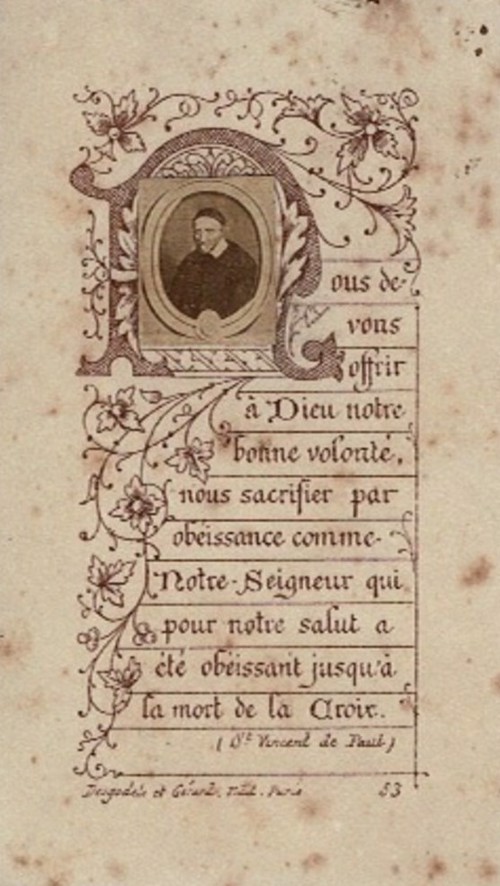 Nous de-
vons
offrir
à Dieu notre
bonne volonté,
nous sacrifier par
obéissance comme
Notre-Seigneur qui
pour notre salut a
été obéissant jusqu'à
la mort de la Croix.
(St Vincent de Paul)
et Gérard, Paris 53